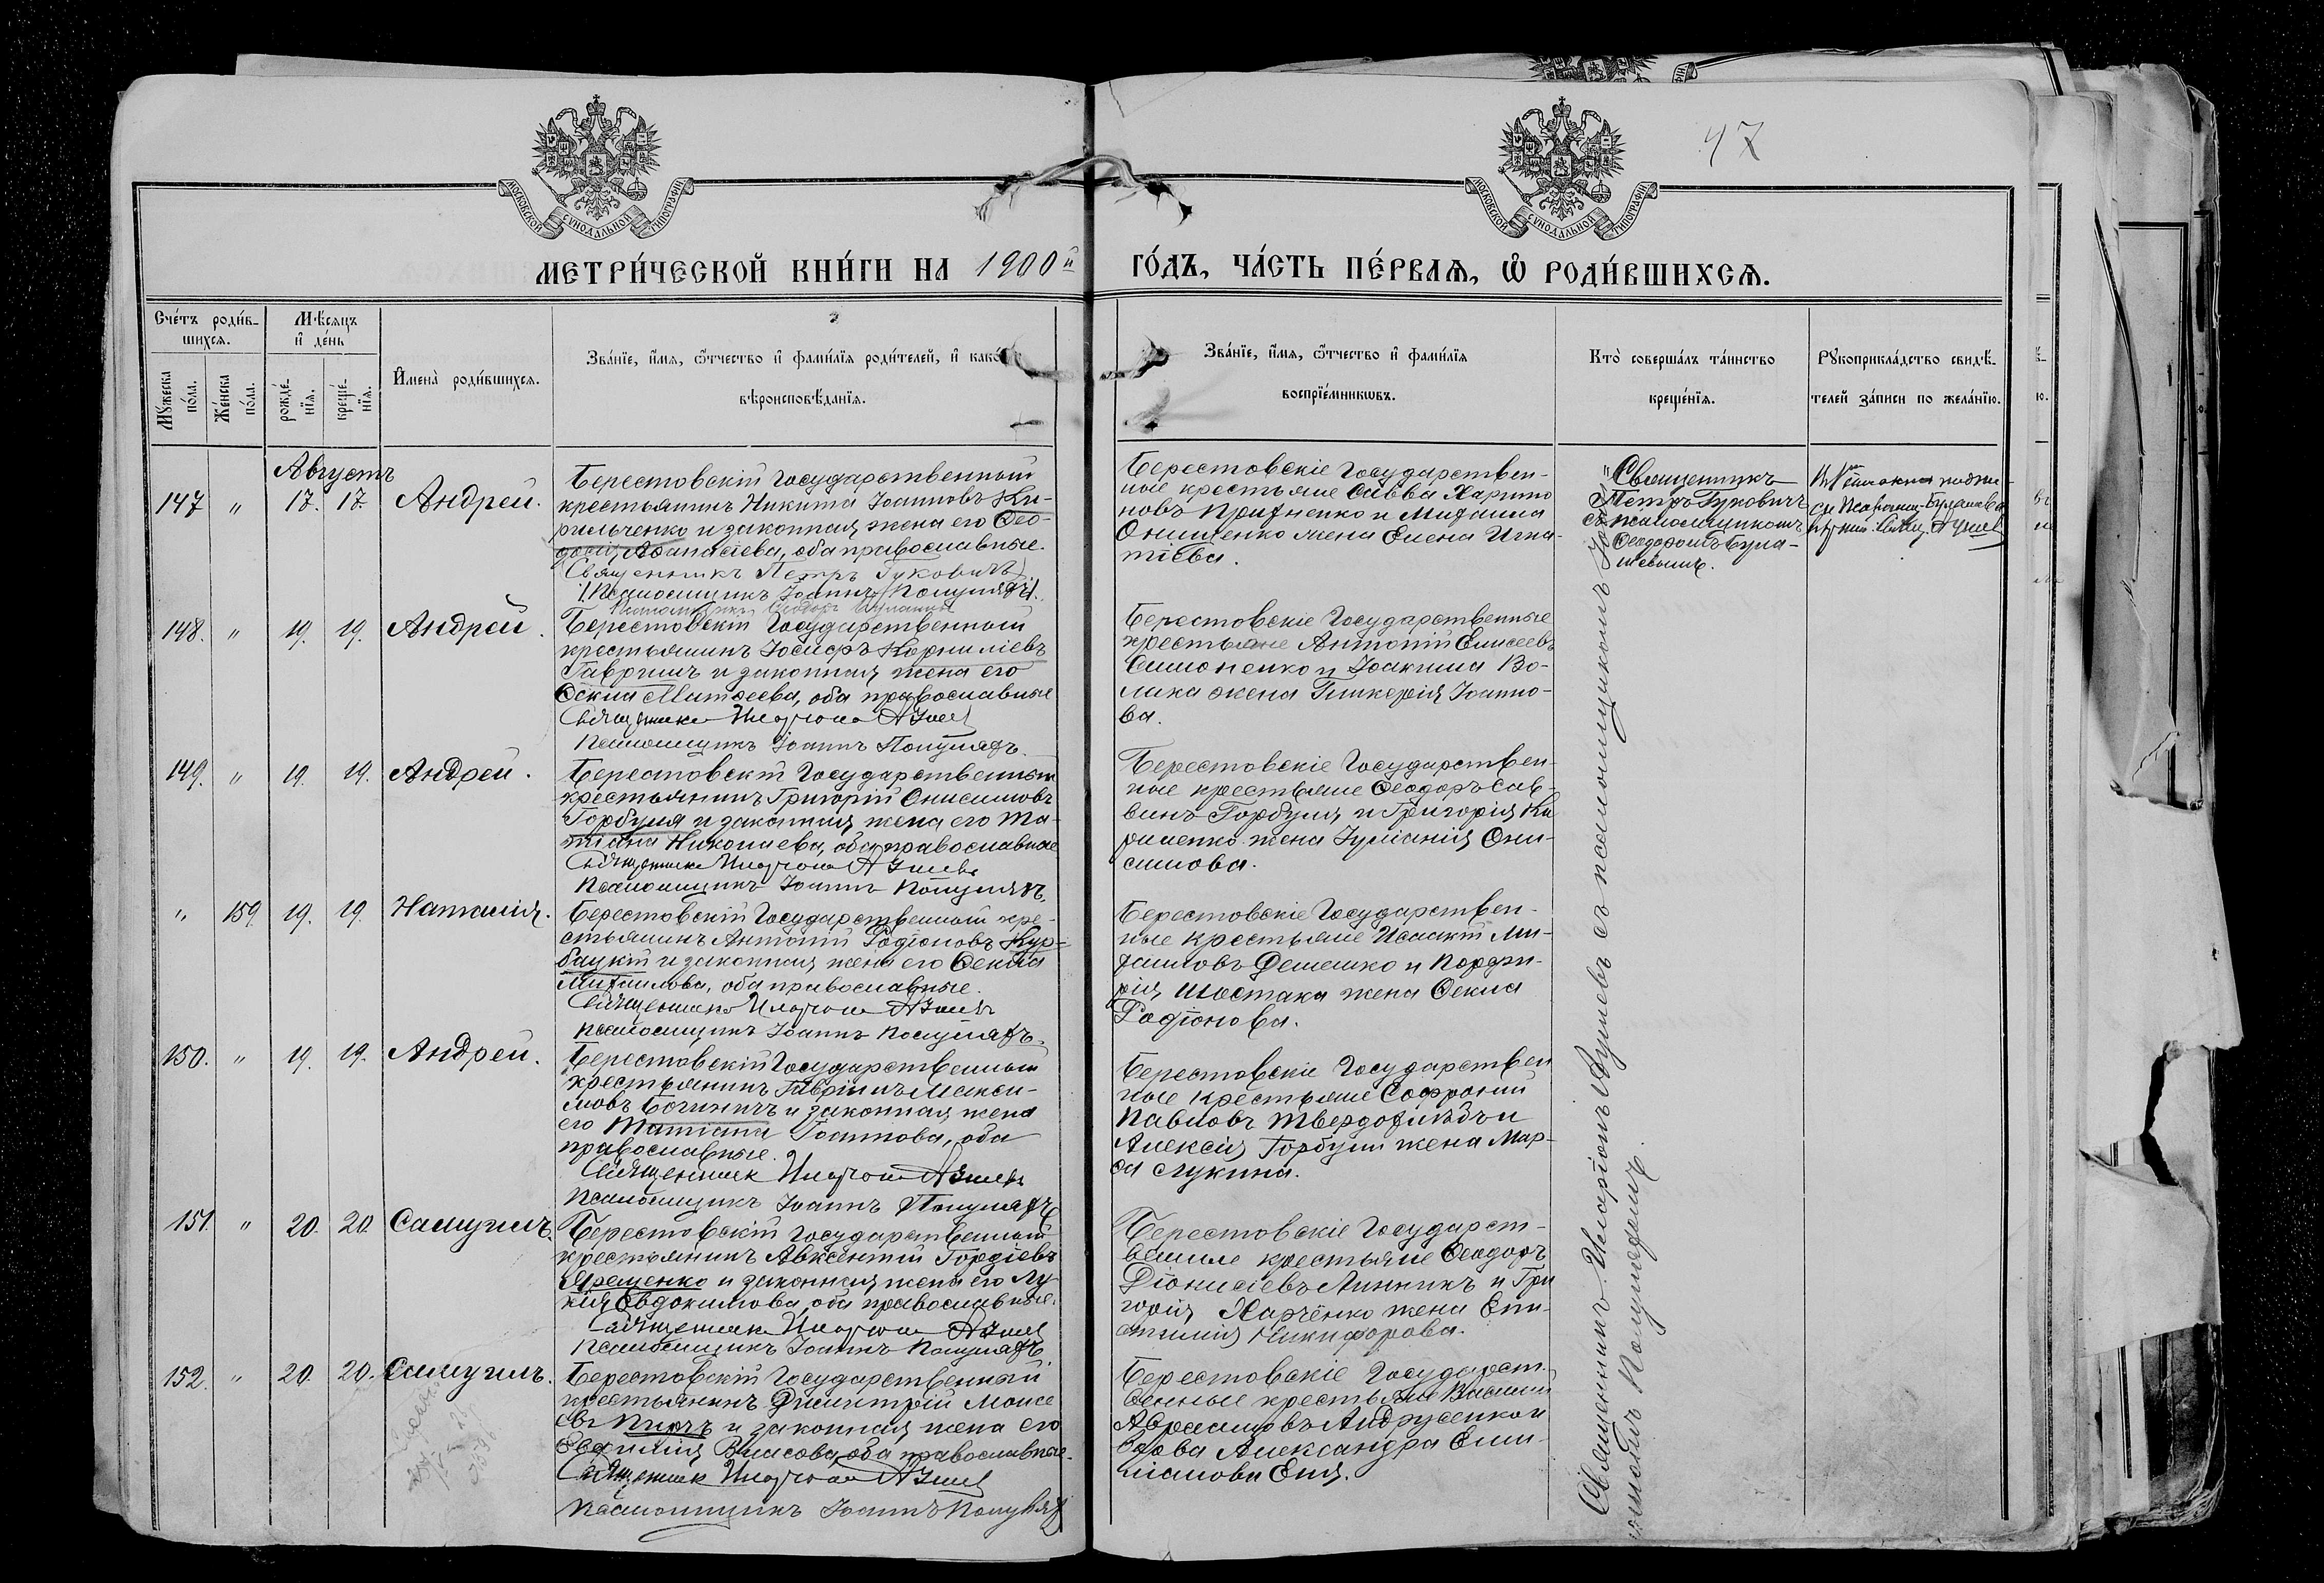 МОСКОВСКОЙ СѴНОДАЛЬНОЙ ТИПОГРАФІИ
МОСКОВСКОЙ СѴНОДАЛЬНОЙ ТИПОГРАФІИ
47
МЕТРИ́ЧЕСКОЙ КНИ́ГИ НА 1900й ГО́ДЪ, ЧА́СТЬ ПЕ́РВАѦ, Ѡ РОДИ́ВШИХСѦ.
Сче́тъ роди́в-
шихсѧ.
Мꙋ́жеска по́ла.
Же́нска по́ла.
Мѣ́сѧцъ
и҆ де́нь
рожде́-
нїѧ.
креще́-
нїѧ.
И҆мена̀ роди́вшихсѧ.
Зва́нїе, и҆́мѧ, ѻ҆́тчество и҆ фами́лїѧ роди́телей, и҆ како́
вѣроисповѣ́данїѧ.
Зва́нїе, и҆́мѧ, ѻ҆́тчество и҆ фами́лїѧ
воспрїе́мникѡвъ.
Кто̀ соверша́лъ та́инство
креще́нїѧ.
Рꙋкоприкла́дство свидѣ́-
телей за́писи по жела́нїю.
Августъ
147 " 17. 17. Андрей.
Берестовскій Государственный
крестьянинъ Никита Іоанновъ Ки-
рильченко и законная жена его Ѳео-
досія Аѳанасіева, оба православные.
Священникъ Петръ Гуковичъ
Псаломщикъ Іоаннъ Полулядъ
Псаломщикъ Ѳеодоръ
Берестовскіе Государствен-
ные крестьяне Савва Харито
новъ и Михаила
Онищенко жена Елена Игна-
тіева.
Священникъ
Петръ Гуковичъ
съ псаломщикомъ
Ѳеодоромъ Була-
шевымъ.
148. " 19. 19. Андрей.
Берестовскій Государственный
крестьянинъ Іосифъ Корниліевъ
Гавришъ и законная жена его
Ѳекла Матѳеева, оба православные
Священникъ Иларіонъ
Псаломщикъ Іоаннъ Полулядъ.
Берестовскіе Государственные
крестьяне Антоній Елисеевъ
Симоненко и Іоакима Во-
лика жена Гликерія Іоанно-
ва.
149. " 19. 19. Андрей.
Берестовскій Государственный
крестьянинъ Григорій Онисимовъ
Горбуля и законная жена его Та-
тіана Николаева, оба православные
Священникъ Иларіонъ
Псаломщикъ Іоаннъ Полулядъ.
Берестовскіе Государствен-
ные крестьяне Ѳеодоръ Сав-
винъ Горбуля и Григорія Ки
риленко жена Іуліанія Они-
симова.
" 159. 19. 19. Наталія.
Берестовскій Государственный кре-
стьянинъ Антоній Родіоновъ Кур-
бацкій и законная жена его Ѳекла
Михаилова, оба православные.
Священникъ Иларіонъ
Псаломщикъ Іоаннъ Полулядъ.
Берестовскіе Государствен-
ные крестьяне Исаакій Ми-
хаиловъ Демешко и Порфи-
рія Шостака жена Ѳекла
Родіонова.
150. " 19. 19. Андрей.
Берестовскій Государственный
крестьянинъ Гавріилъ Макси-
мовъ и законная жена
его Татіана Іоаннова, оба
православные.
Священникъ Иларіонъ
Псаломщикъ Іоаннъ Полулядъ
Берестовскіе Государствен
ные крестьяне Софроній
Павловъ Твердохлѣбъ и
Алексія Горбули жена Мар-
ѳа Лукина.
151. " 20. 20. Самуилъ.
Берестовскій Государственный
крестьянинъ Авксентій Гордіевъ
Ярещенко и законная жена его Лу-
кія Евдокимова, оба православные.
Священникъ Иларіонъ
Псаломщикъ Іоаннъ Полулядъ
Берестовскіе Государст-
венные крестьяне Ѳеодоръ
Діонисіевъ Линникъ и Гри
горія Харченко жена Епи-
стимія Никифорова.
152. " 20. 20. Самуилъ.
Берестовскій Государственный
крестьянинъ Димитрій Моисе
евъ и законная жена его
Евфимія Власова, оба православные.
Священникъ Иларіонъ
Псаломщикъ Іоаннъ Полулядъ
Берестовскіе Государст-
венные крестьяне Василій
Авраамовъ Андрусенко и
вдова Александра Еми-
ліанова
Священникъ Иларіонъ съ псаломщикомъ Іоан-
номъ Полулядомъ.